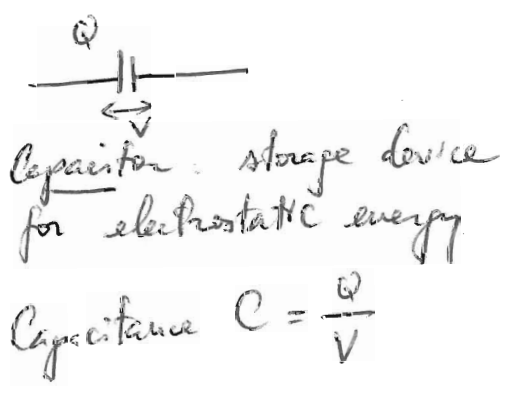 Q
V
Capacitor : storage device
for electrostatic energy
Capacitance C = Q/V